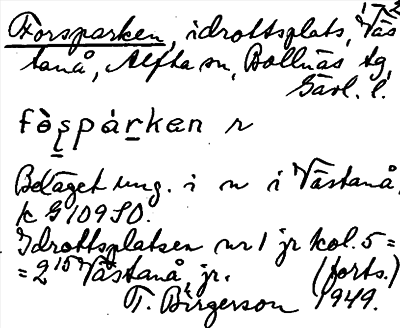 Forsparken, idrottsplats, Väs
tanå, Alfta sn, Bollnäs tg,
Gävl. l.
fò̜spárken r
Beläget ung. i n i Västanå,
k G109SO.
Idrottsplatsen nr 1 jr kol. 5 =
= 2¹⁵ Västanå, jr. (forts.)
T. Birgerson 1949.